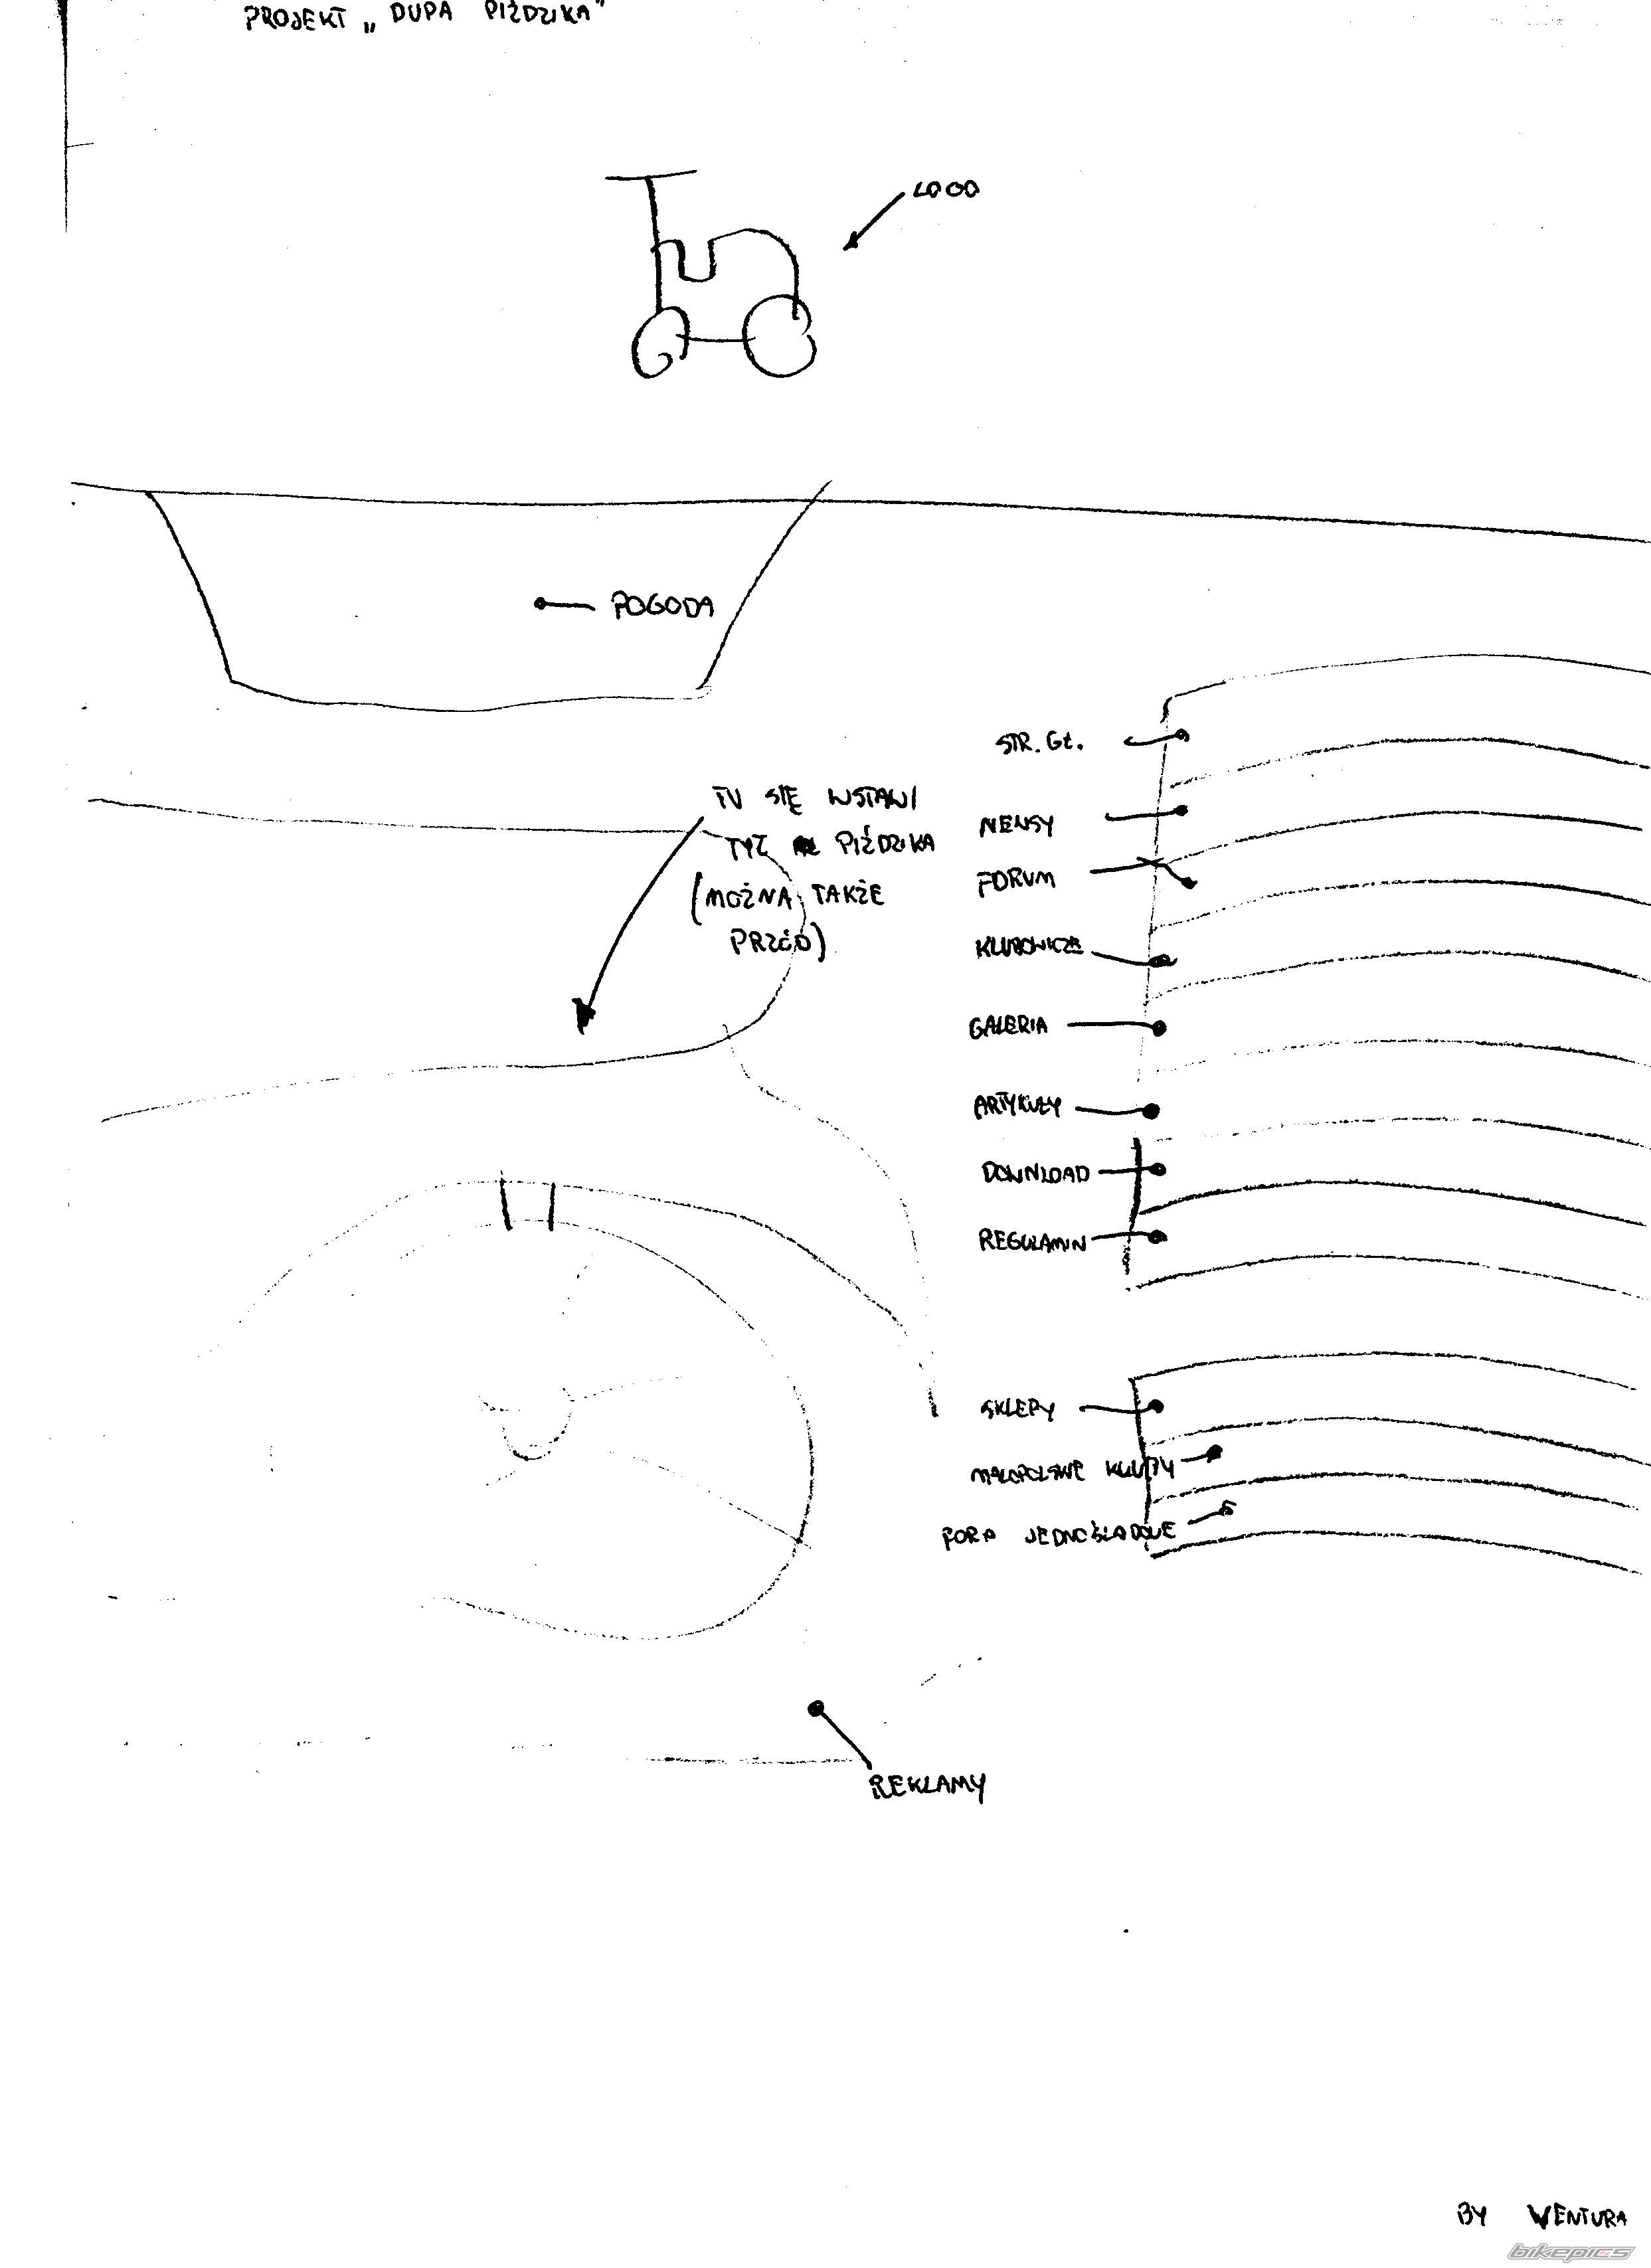 PROJEKT „DUPA PIŹDZIKA"
LOGO
POGODA
TU SIĘ WSTAWI
TYŁ PIŹDZIKA
(MOŻNA TAKŻE
PRZÓD)
STR. GŁ.
NEWSY
FORUM
KLUBOWICZE
GALERIA
ARTYKUŁY
DOWNLOAD
REGULAMIN
SKLEPY
MAŁOPOLSKIE KLUBY
FORA JEDNOŚLADOWE
REKLAMY
BY VENTURA
bikepics